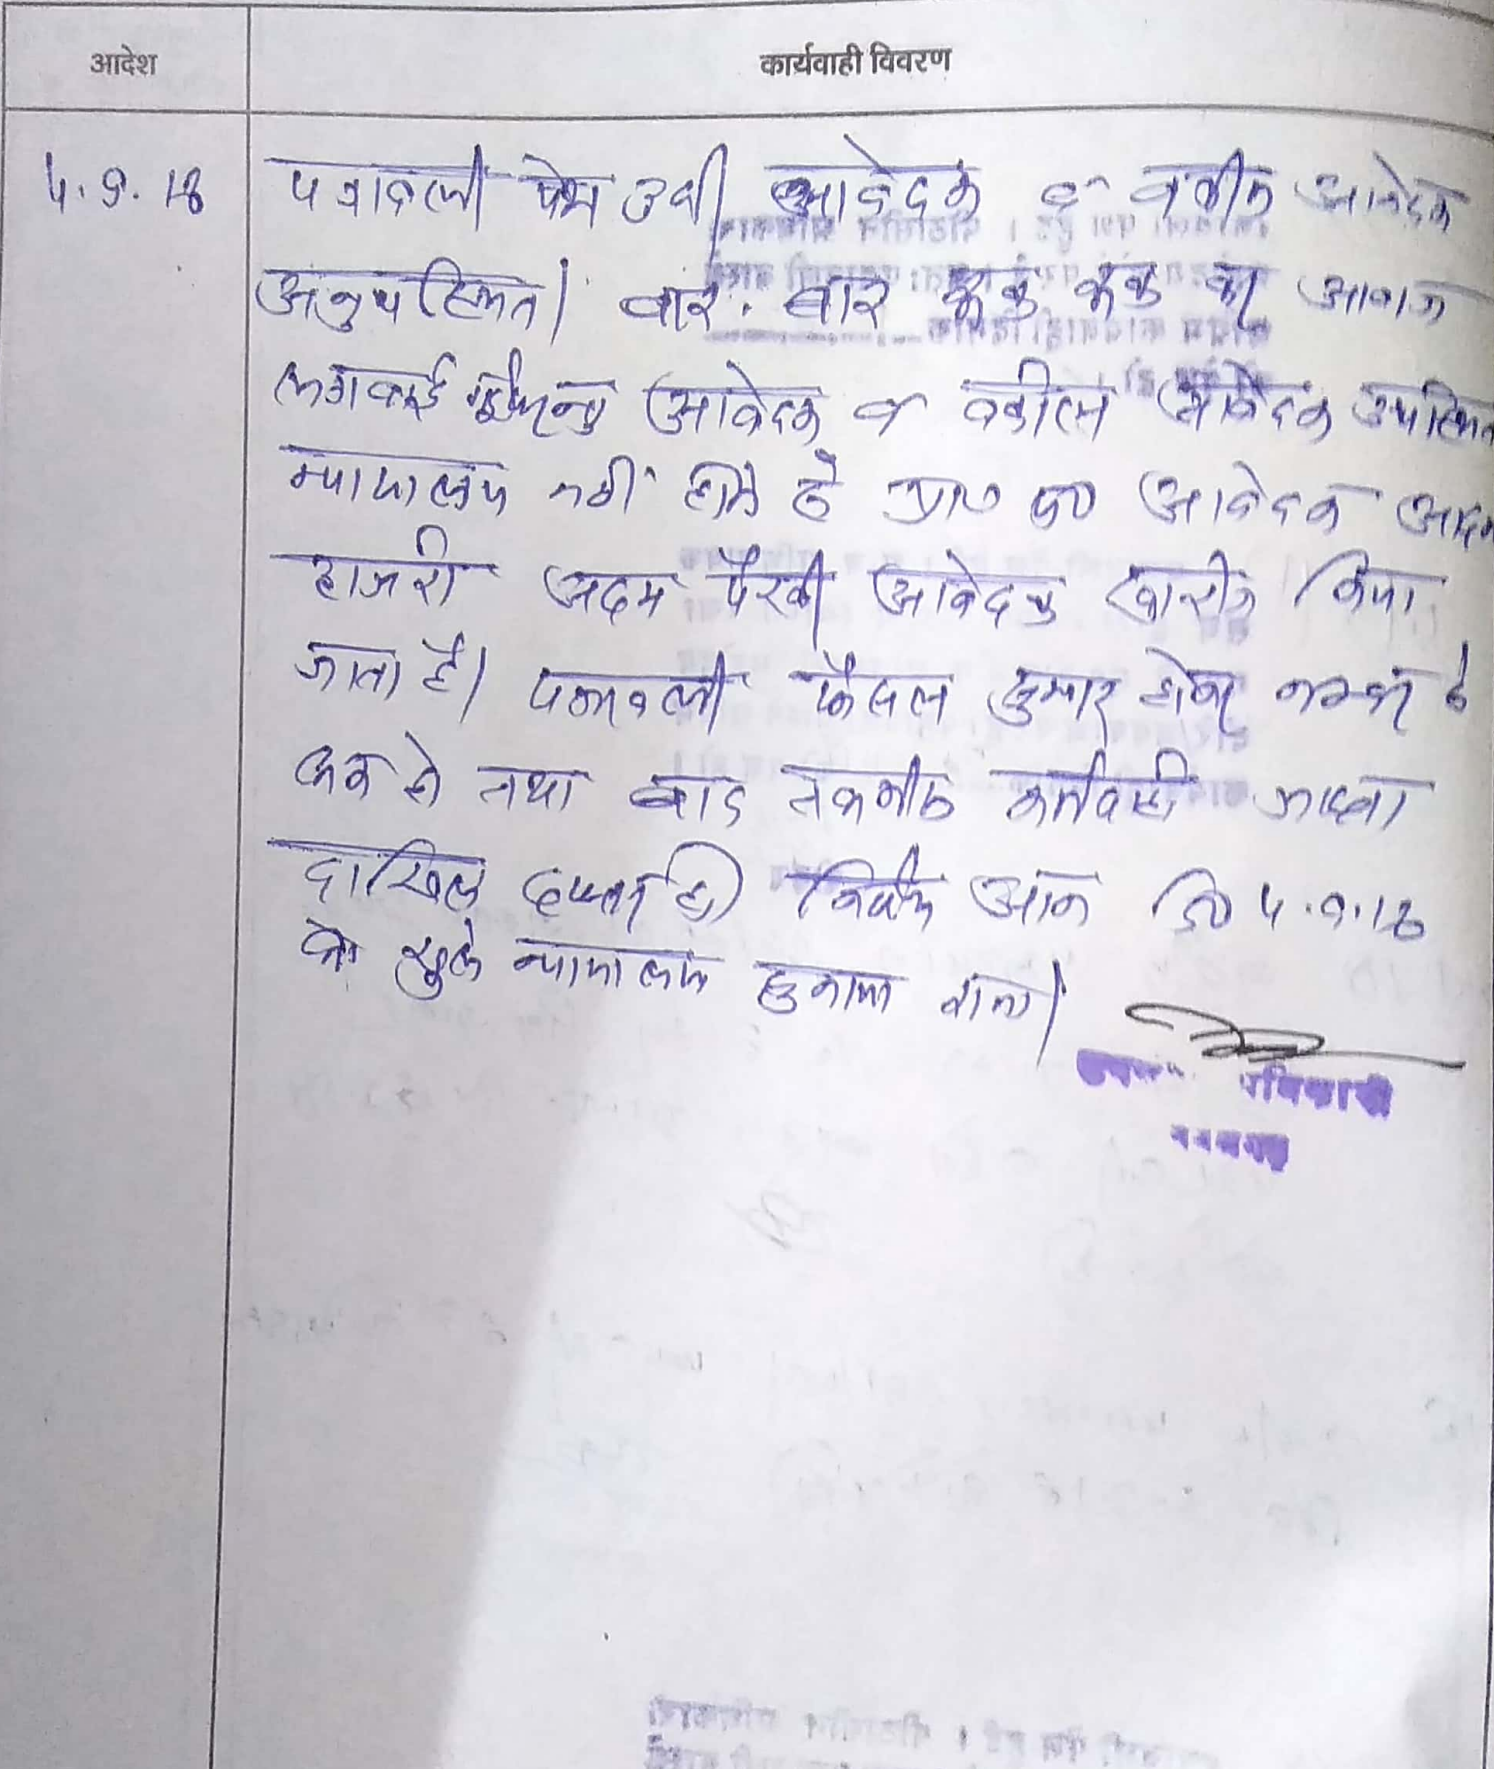 आदेश
कार्यवाही विवरण
4.9.18
पत्रावली पेश हुयी आवेदक व वकील आवेदक
अनुपस्थित। बार-बार रूक रूक कर आवाज
लगवाई गई परन्तु आवेदक व वकील आवेदक उपस्थित
न्यायालय नहीं होते है प्रा० प० आवेदक अदम
हाजरी अदम पैरवी आवेदक खारीज किया
जाता है। पत्रावली फैसल शुमार होकर नम्बर से
कम हो तथा बाद तकमील कार्यवाही जाब्ता
दाखिल दफ्तर हो निर्णय आज दि० 4.9.18
को खुले न्यायालय सुनाया गया।